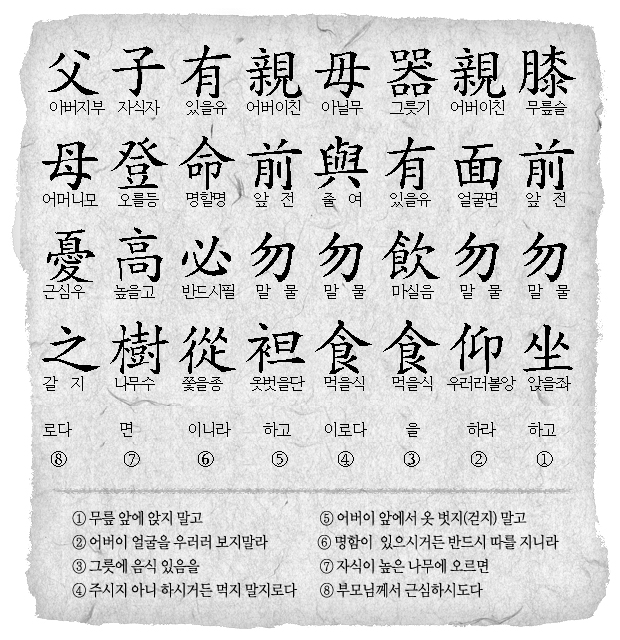 膝 무릎슬 前 앞 전 勿 말 물 坐 앉을좌 하고 ①
親 어버이친 面 얼굴면 勿 말 물 仰 우러러볼앙 하라 ②
器 그릇기 有 있을유 飮 마실음 食 먹을식 을 ③
毋 아닐무 與 줄 여 勿 말 물 食 먹을식 이로다 ④
親 어버이친 前 앞 전 勿 말 물 袒 옷벗을단 하고 ⑤
有 있을유 命 명할명 必 반드시필 從 쫓을종 이니라 ⑥
子 자식자 登 오를등 高 높을고 樹 나무수 면 ⑦
父 아버지부 母 어머니모 憂 근심우 之 갈 지 로다 ⑧
① 무릎 앞에 앉지 말고
② 어버이 얼굴을 우러러 보지말라
③ 그릇에 음식 있음을
④ 주시지 아니 하시거든 먹지 말지로다
⑤ 어버이 앞에서 옷 벗지(걷지) 말고
⑥ 명함이 있으시거든 반드시 따를 지니라
⑦ 자식이 높은 나무에 오르면
⑧ 부모님께서 근심하시도다